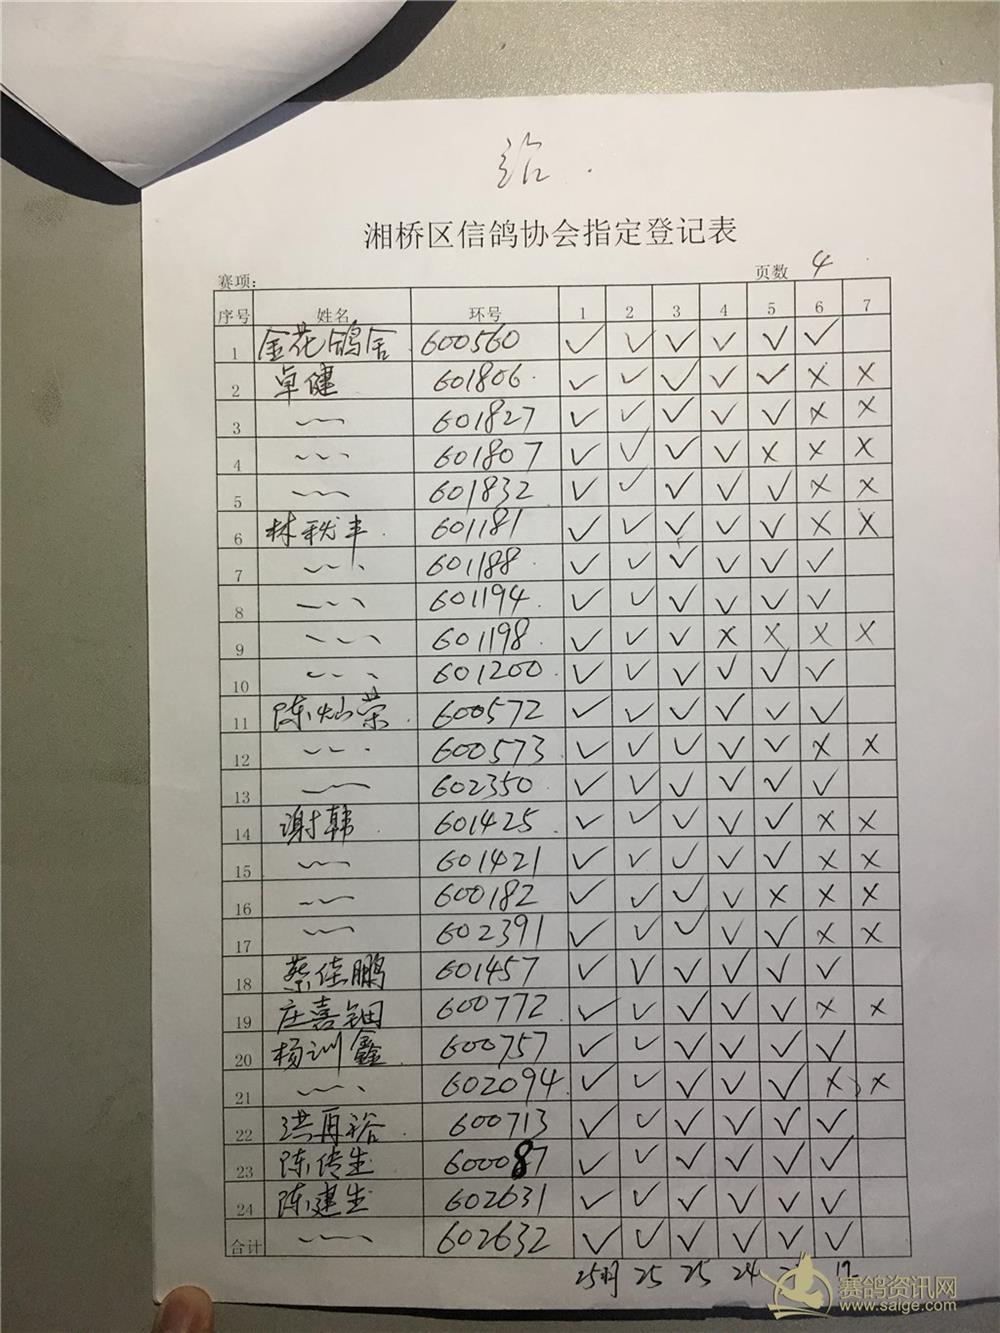 湘桥区信鸽协会指定登记表
赛项: 页数 4
序号 姓名 环号 1 2 3 4 5 6 7
1 金花鸽舍 600560 ✓ ✓ ✓ ✓ ✓ ✓
2 卓健 601806 ✓ ✓ ✓ ✓ ✓ × ×
3 601827 ✓ ✓ ✓ ✓ ✓ × ×
4 601807 ✓ ✓ ✓ ✓ × × ×
5 601832 ✓ ✓ ✓ ✓ ✓ × ×
6 林秋丰 601181 ✓ ✓ ✓ ✓ ✓ × ×
7 601188 ✓ ✓ ✓ ✓ ✓ ✓
8 601194 ✓ ✓ ✓ ✓ ✓ ✓
9 601198 ✓ ✓ ✓ × × × ×
10 601200 ✓ ✓ ✓ ✓ ✓ ✓
11 陈灿荣 600572 ✓ ✓ ✓ ✓ ✓ ✓
12 600573 ✓ ✓ ✓ ✓ ✓ × ×
13 602350 ✓ ✓ ✓ ✓ ✓ ✓
14 谢韩 601425 ✓ ✓ ✓ ✓ ✓ × ×
15 601421 ✓ ✓ ✓ ✓ ✓ × ×
16 600182 ✓ ✓ ✓ ✓ × × ×
17 602391 ✓ ✓ ✓ ✓ ✓ × ×
18 蔡佳鹏 601457 ✓ ✓ ✓ ✓ ✓ ✓
19 庄喜钿 600772 ✓ ✓ ✓ ✓ ✓ × ×
20 杨训鑫 600757 ✓ ✓ ✓ ✓ ✓ ✓
21 602094 ✓ ✓ ✓ ✓ ✓ × ×
22 洪再裕 600713 ✓ ✓ ✓ ✓ ✓ ✓
23 陈传生 600087 ✓ ✓ ✓ ✓ ✓ ✓
24 陈建生 602631 ✓ ✓ ✓ ✓ ✓ ✓
合计 602632 ✓ ✓ ✓ ✓ ✓ ✓
25羽 25 25 24 12
赛鸽资讯网
www.saige.com